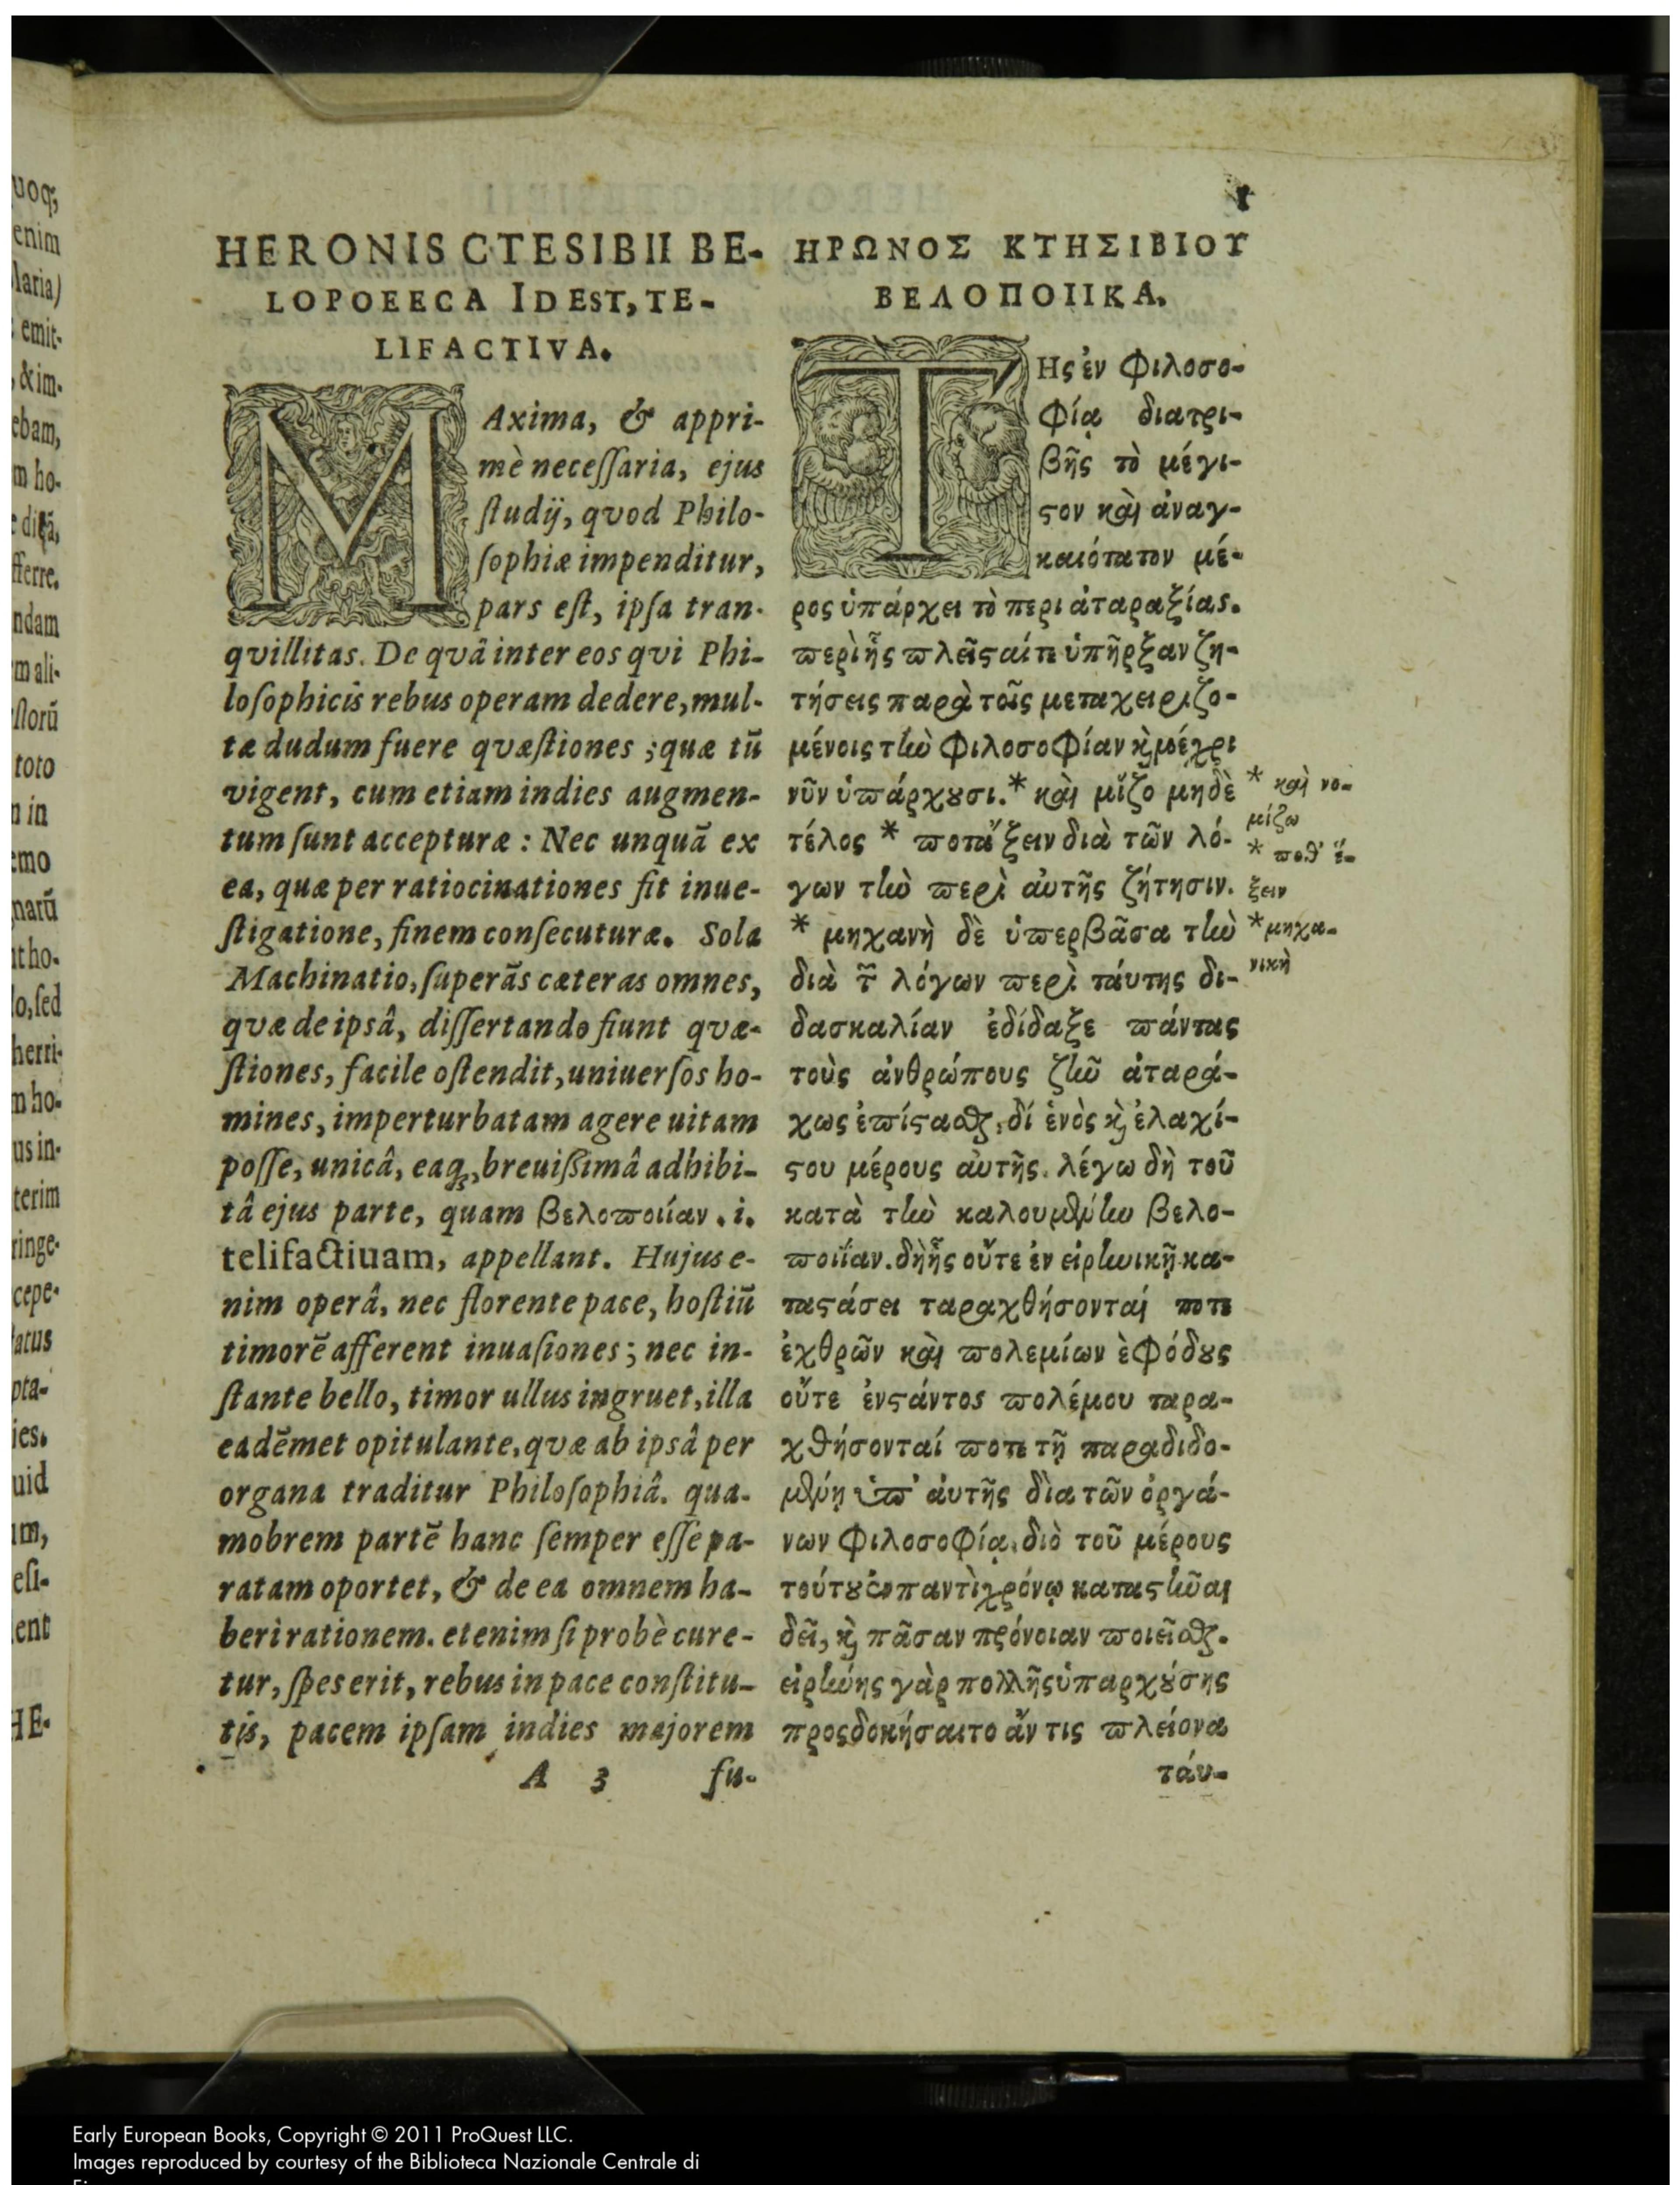 uoq;
enim
Maria)
emit-
, & im-
ebam,
m ho-
fferre.
ndam
m ali-
toto
n in
emo
narũ
lo, ſed
herri-
m ho-
us in-
terim
ringe-
cepe-
pta-
ies.
uid
eſi-
ent
HE-
1
HERONIS CTESIBII BE-
LOPOEECA IDEST, TE-
LIFACTIVA.
MAxima, & appri-
mè neceſſaria, ejus
ſtudij, qvod Philo-
ſophiæ impenditur,
pars eſt, ipſa tran-
qvillitas. De qvâ inter eos qvi Phi-
loſophicis rebus operam dedere, mul-
tæ dudum fuere qvæſtiones ; quæ tũ
vigent, cum etiam indies augmen-
tum ſunt accepturæ : Nec unquã ex
ea, quæ per ratiocinationes fit inue-
ſtigatione, finem conſecuturæ. Sola
Machinatio, ſuperãs cæteras omnes,
qvæ de ipsâ, diſſertando fiunt qvæ-
ſtiones, facile oſtendit, uniuerſos ho-
mines, imperturbatam agere uitam
poſſe, unicâ, eaq;, breuiſſimâ adhibi-
tâ ejus parte, quam βελοποιΐαν . i.
telifactiuam, appellant. Hujus e-
nim operâ, nec florente pace, hoſtiũ
timorẽ afferent inuaſiones ; nec in-
ſtante bello, timor ullus ingruet, illa
eadẽmet opitulante, qvæ ab ipsâ per
organa traditur Philoſophiâ. qua-
mobrem partẽ hanc ſemper eſſe pa-
ratam oportet, & de ea omnem ha-
beri rationem. etenim ſi probè cure-
tur, ſpes erit, rebus in pace conſtitu-
tis, pacem ipſam indies majorem
A 3 fu-
ΗΡΩΝΟΣ ΚΤΗΣΙΒΙΟΥ
ΒΕΛΟΠΟΙΙΚΑ.
ΤΗς ἐν φιλοσο-
φίᾳ διατρι-
βῆς τὸ μέγι-
ϛον καὶ ἀναγ-
καιότατον μέ-
ρος ὑπάρχει τὸ περι ἀταραξίας.
περὶ ἧς πλεῖϛαί τε ὑπῆρξαν ζη-
τήσεις παρὰ τοῖς μεταχειριζο-
μένοις τὴν φιλοσοφίαν καὶ μέχρι
νῦν ὑπάρχουσι.* καὶ μίζο μηδὲ
τέλος * ποτά ἕξειν διὰ τῶν λό-
γων τὴν περὶ ἀυτῆς ζήτησιν.
* μηχανὴ δὲ ὑπερβᾶσα τὴν
διὰ τῶν λόγων περὶ τάυτης δι-
δασκαλίαν ἐδίδαξε πάντας
τοὺς ἀνθρώπους ζῆν ἀταρά-
χως ἐπίϛασθαι, δί ἑνὸς καὶ ἐλαχί-
ϛου μέρους ἀυτῆς. λέγω δὴ τοῦ
κατὰ τὴν καλουμένην βελο-
ποιΐαν. δἠ ἧς οὔτε ἐν εἰρηνικῇ κα-
ταϛάσει ταραχθήσονταί ποτε
ἐχθρῶν καὶ πολεμίων ἐφόδους
οὔτε ἐνϛάντος πολέμου ταρα-
χθήσονταί ποτε τῇ παραδιδο-
μένῃ ὑπ’ ἀυτῆς δὶα τῶν ὀργά-
νων φιλοσοφίᾳ. διὸ τοῦ μέρους
τούτου ἐν παντὶ χρόνῳ καταϛῆναι
δεῖ, καὶ πᾶσαν πρόνοιαν ποιεῖσθαι.
εἰρήνης γὰρ πολλῆς ὑπαρχούσης
προςδοκήσαιτο ἄν τις πλείονα
τάυ-
* καὶ νο-
μίζω
* ποθ’ ἕ-
ξειν
* μηχα-
νικὴ
Early European Books, Copyright © 2011 ProQuest LLC.
Images reproduced by courtesy of the Biblioteca Nazionale Centrale di